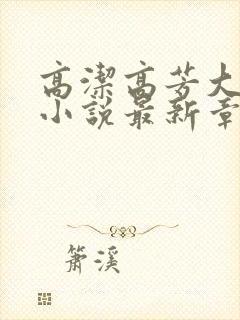 高潔高芳大
小說最新章
簫溪